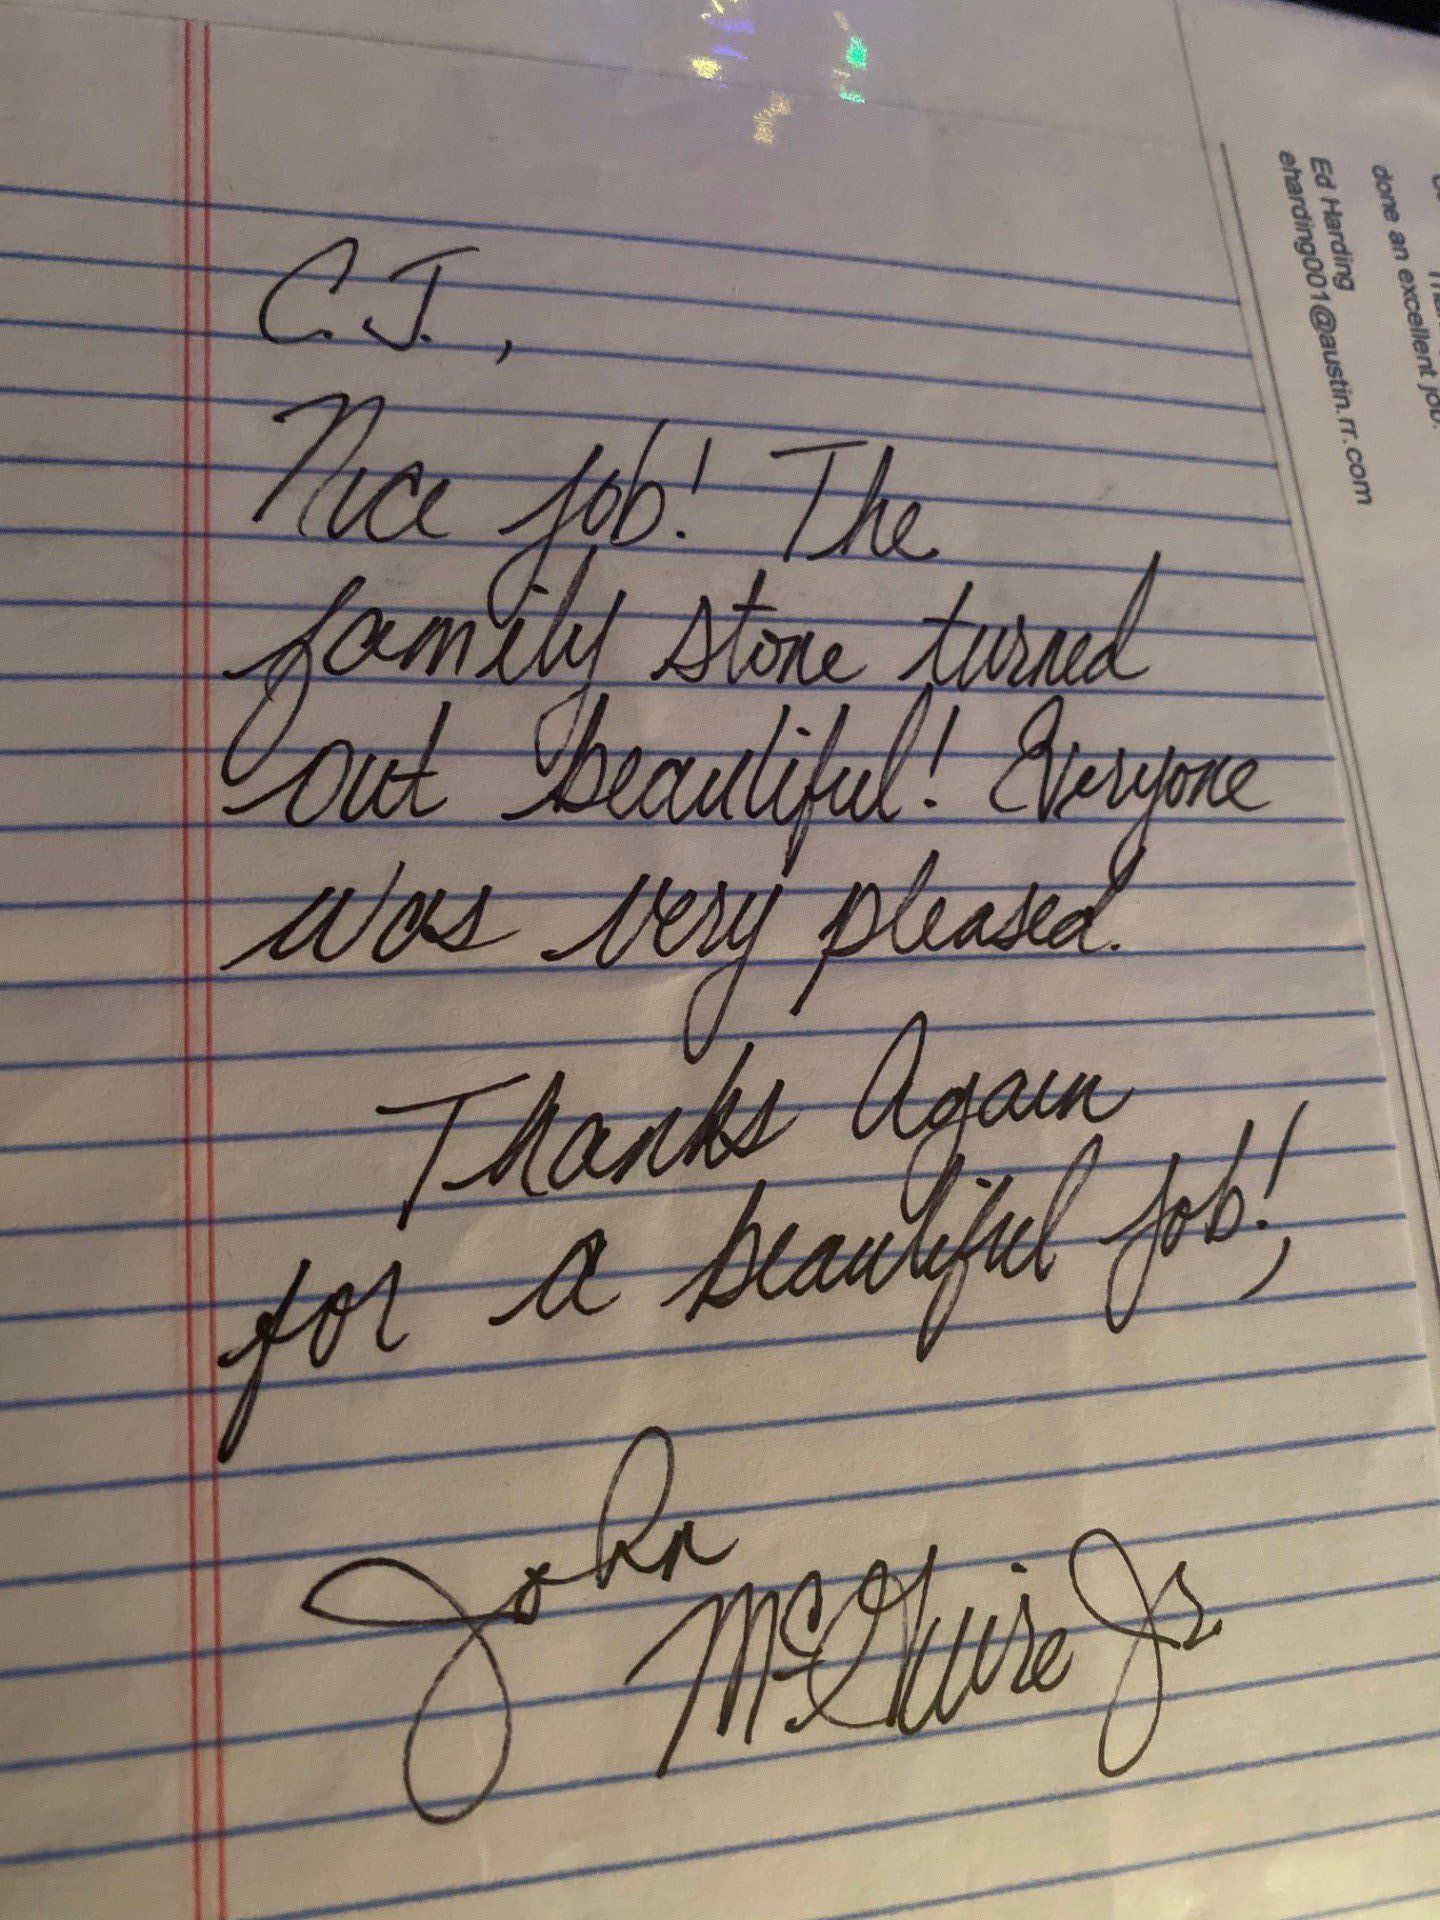 C.J.,
Nice job! The
family stone turned
out beautiful! Everyone
was very pleased.
Thanks Again
for a beautiful job!,
John
McGuire Jr.
done an excellent job.
Ed Harding
eharding001@austin.rr.com